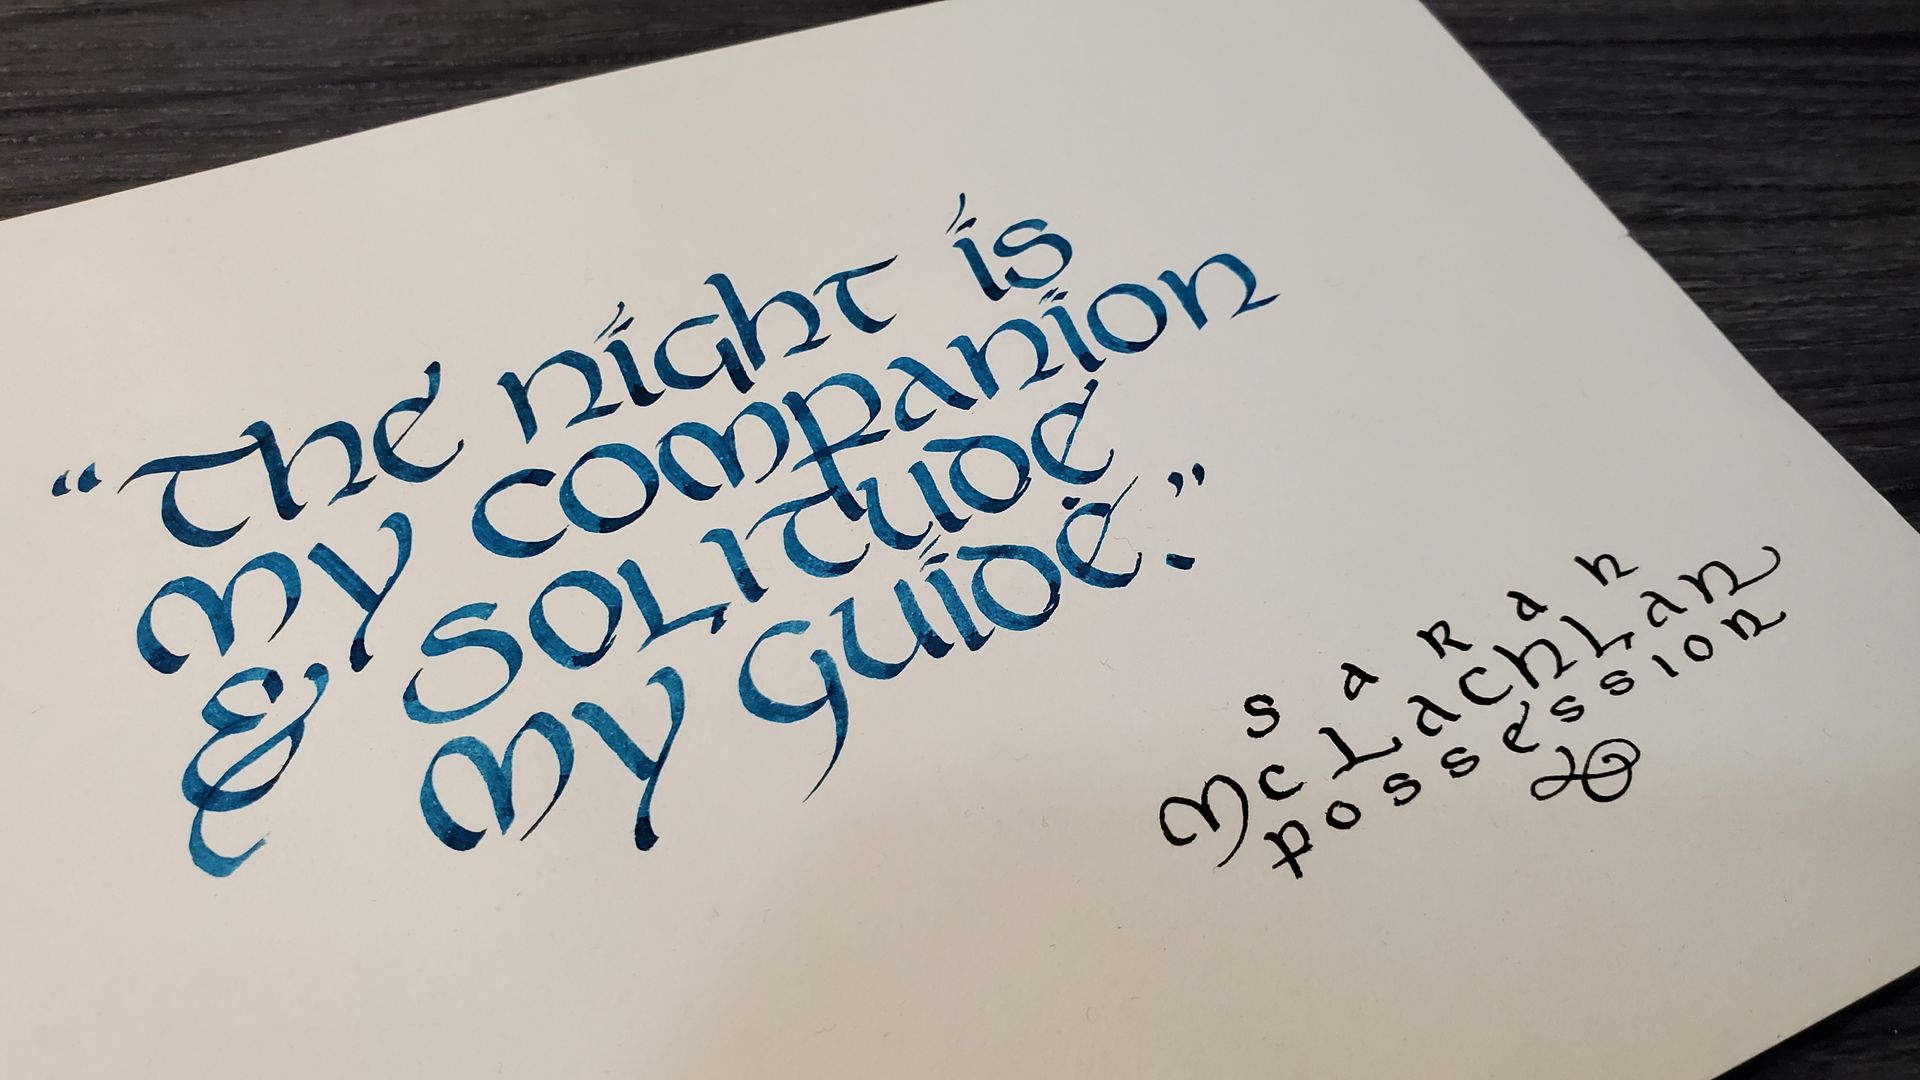 “The night is
my companion
& solitude
my guide.”
Sarah
McLachlan
possession